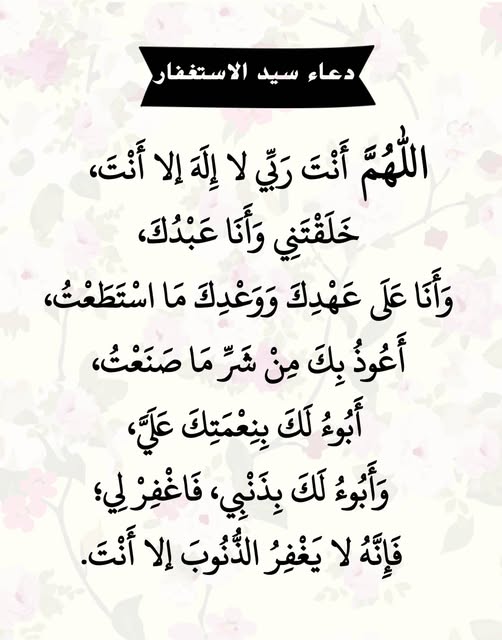 دعاء سيد الاستغفار
اللَّهُمَّ أَنْتَ رَبِّي لا إِلَهَ إلا أَنْتَ،
خَلَقْتَنِي وَأَنَا عَبْدُكَ،
وَأَنَا عَلَى عَهْدِكَ وَوَعْدِكَ مَا اسْتَطَعْتُ،
أَعُوذُ بِكَ مِنْ شَرِّ مَا صَنَعْتُ،
أَبُوءُ لَكَ بِنِعْمَتِكَ عَلَيَّ،
وَأَبُوءُ لَكَ بِذَنْبِي، فَاغْفِرْ لِي؛
فَإِنَّهُ لا يَغْفِرُ الذُّنُوبَ إلا أَنْتَ.